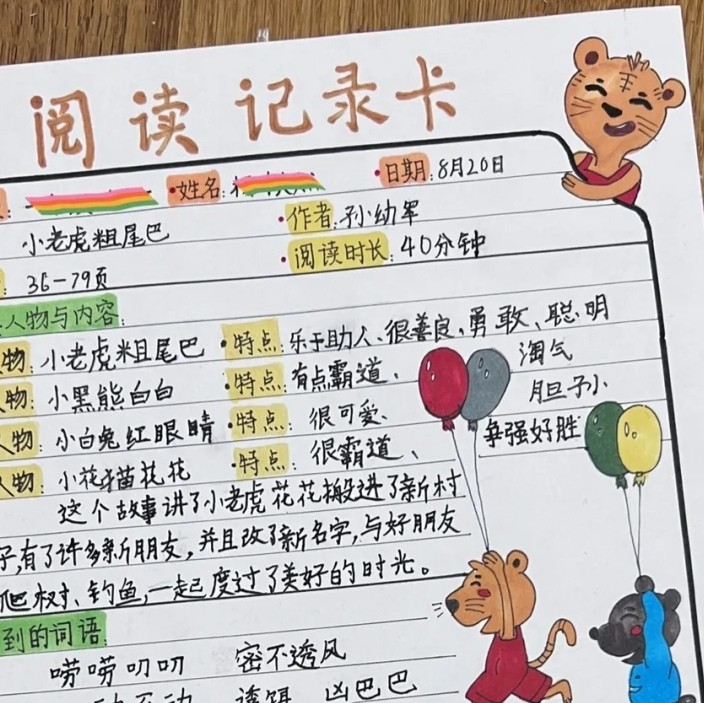 阅读记录卡
姓名: 日期:8月20日
小老虎粗尾巴 作者:孙幼军
36-79页 阅读时长:40分钟
人物与内容:
物:小老虎粗尾巴 特点:乐于助人、很善良、勇敢、聪明
人物:小黑熊白白 特点:有点霸道、淘气
人物:小白兔红眼睛 特点:很可爱、胆子小
人物:小花猫花花 特点:很霸道、争强好胜
这个故事讲了小老虎花花搬进了新村
子,有了许多新朋友,并且改了新名字,与好朋友
爬树、钓鱼,一起度过了美好的时光。
到的词语:
唠唠叨叨 密不透风
不动 诱饵 凶巴巴